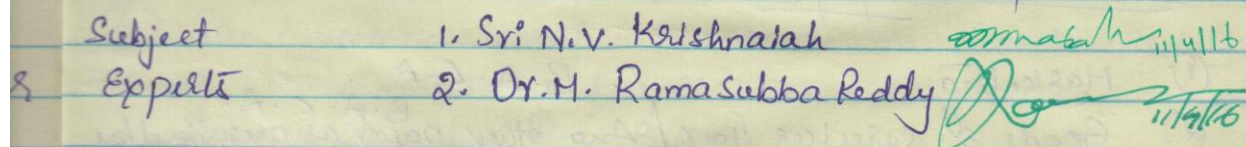 Subject 1. Sri N.V. Krishnaiah 11/4/16
& Experts 2. Dr. M. Ramasubba Reddy 11/4/16